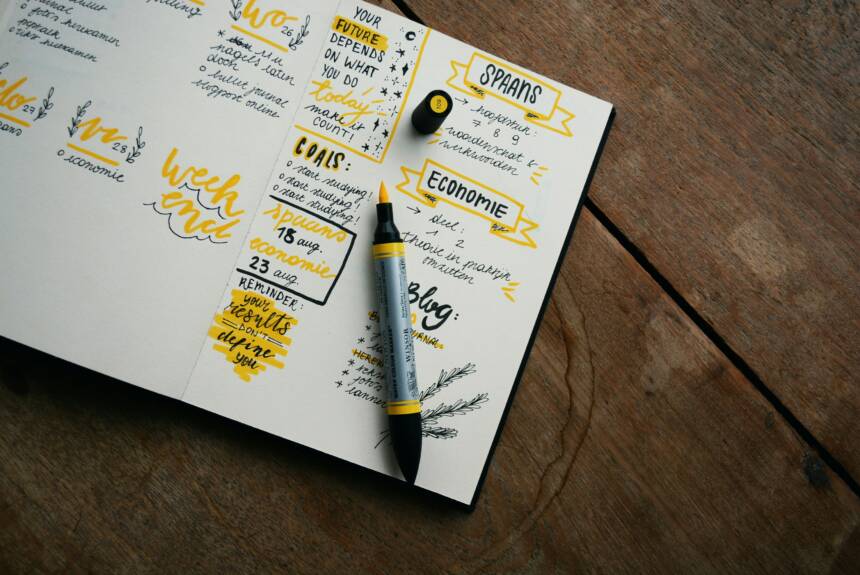 wo
26
nagels laten
doen
o bullet journal
blogpost online
herexamen
herexamen
27
vr
28
o economie
week
end
YOUR
FUTURE
DEPENDS
ON WHAT
YOU DO
today
make it
COUNT!
GOALS:
o start studying!
o start studying!
o start studying!
spaans
18 aug.
economie
23 aug.
REMINDER:
your
results
DON'T
define
you
SPAANS
→ hoofdstuk:
7 8 9
woordenschat &
werkwoorden
ECONOMIE
→ deel:
1 2
theorie in praktijk
omzetten
Blog:
WINSOR